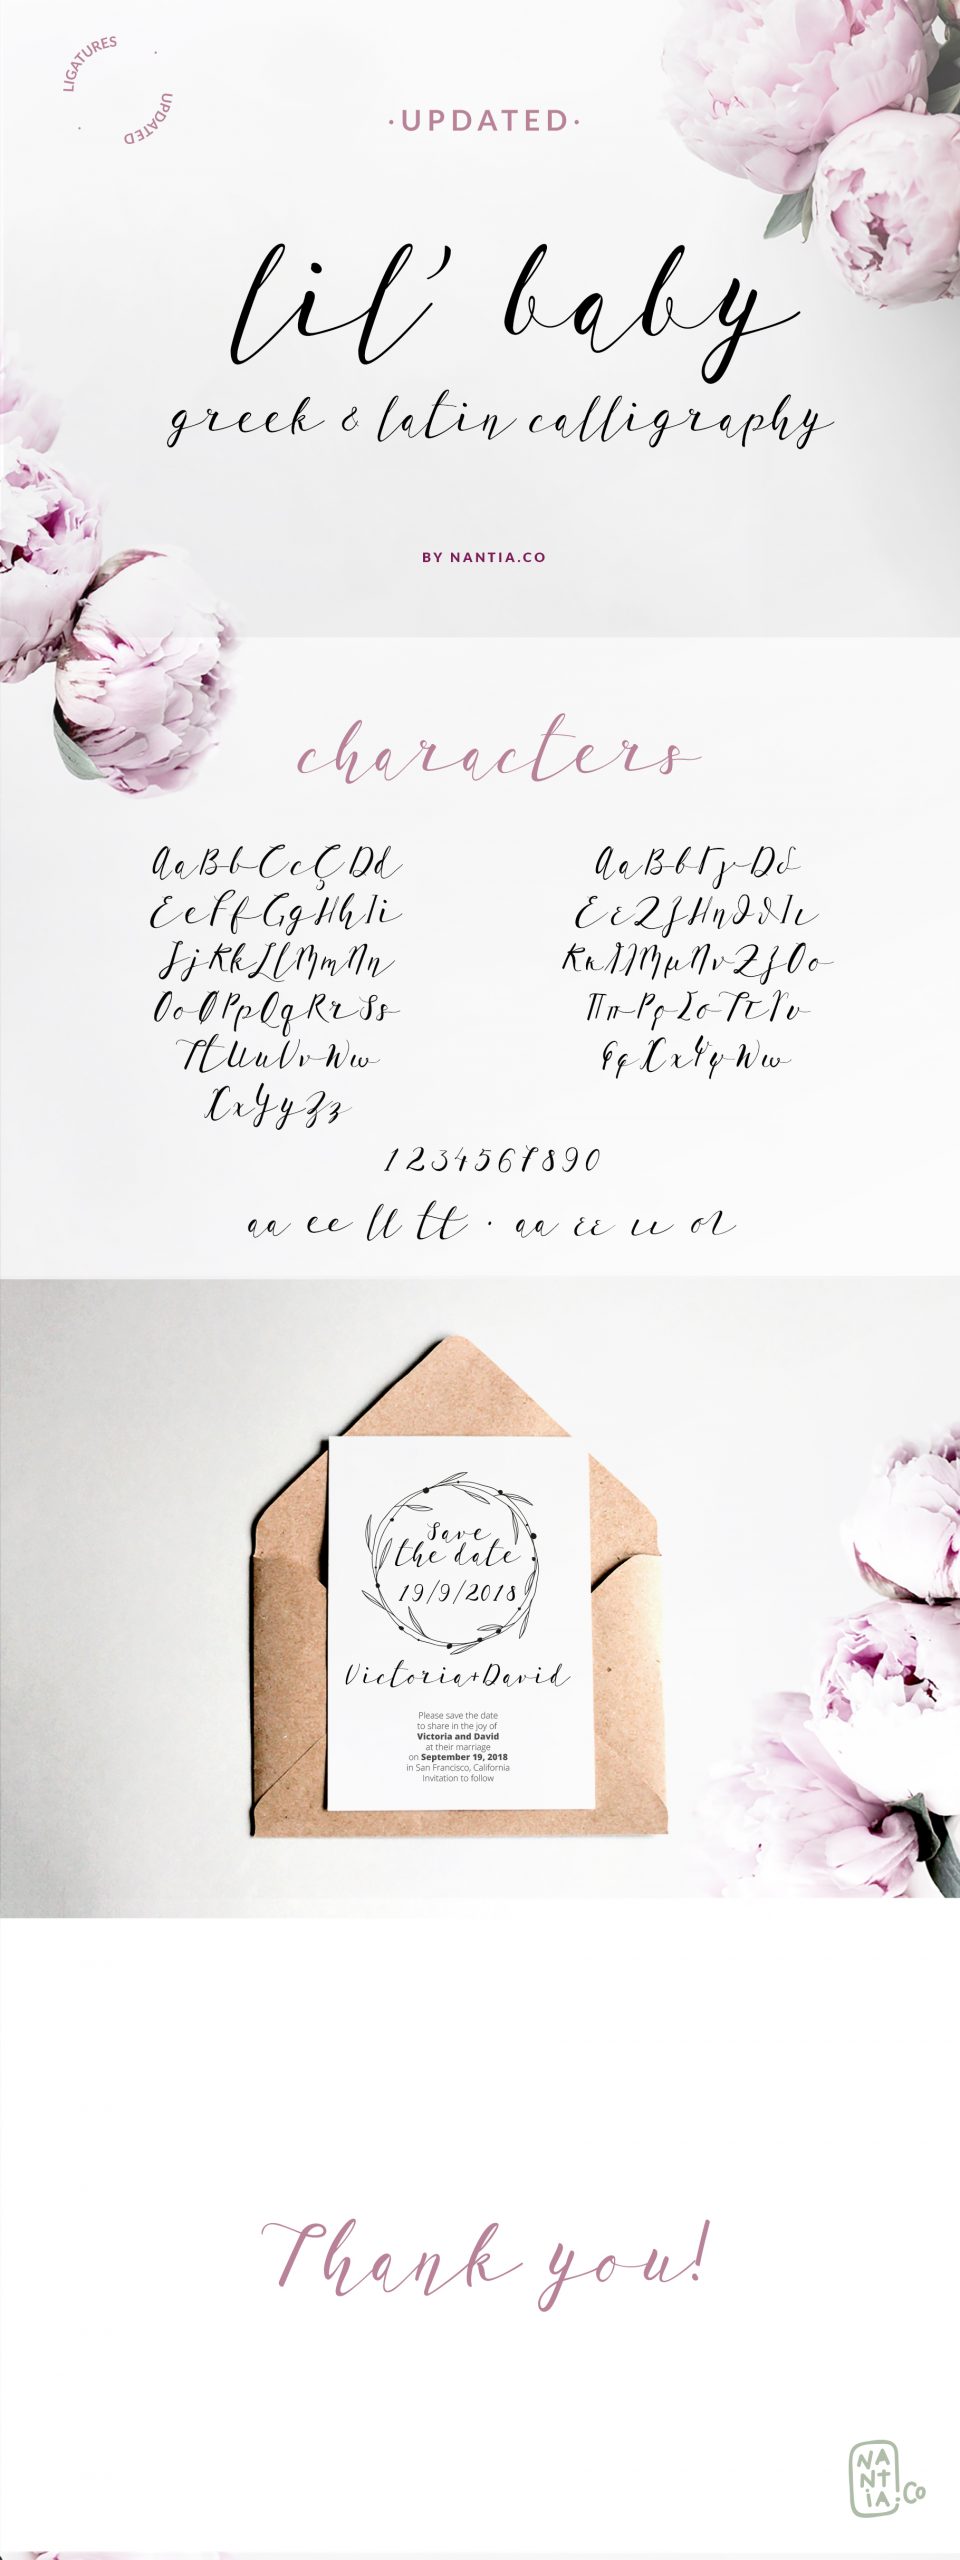 LIGATURES · UPDATED ·
·UPDATED·
lil' baby
greek & latin calligraphy
BY NANTIA.CO
characters
AaBbCcÇDd
EeFfGgHhIi
JjKkLlMmNn
OoØPpQqRrSs
TtUuVvWw
XxYyZz
ΑαΒβΓγΔδ
ΕεΖζΗηΘθΙι
ΚκΛλΜμΝνΞξΟο
ΠπΡρΣσΤτΥυ
ΦφΧχΨψΩω
1234567890
aa ee ll tt · αα εε ιι ολ
Save
the date
19/9/2018
Victoria+David
Please save the date
to share in the joy of
Victoria and David
at their marriage
on September 19, 2018
in San Francisco, California
Invitation to follow
Thank you!
NANTIA.Co